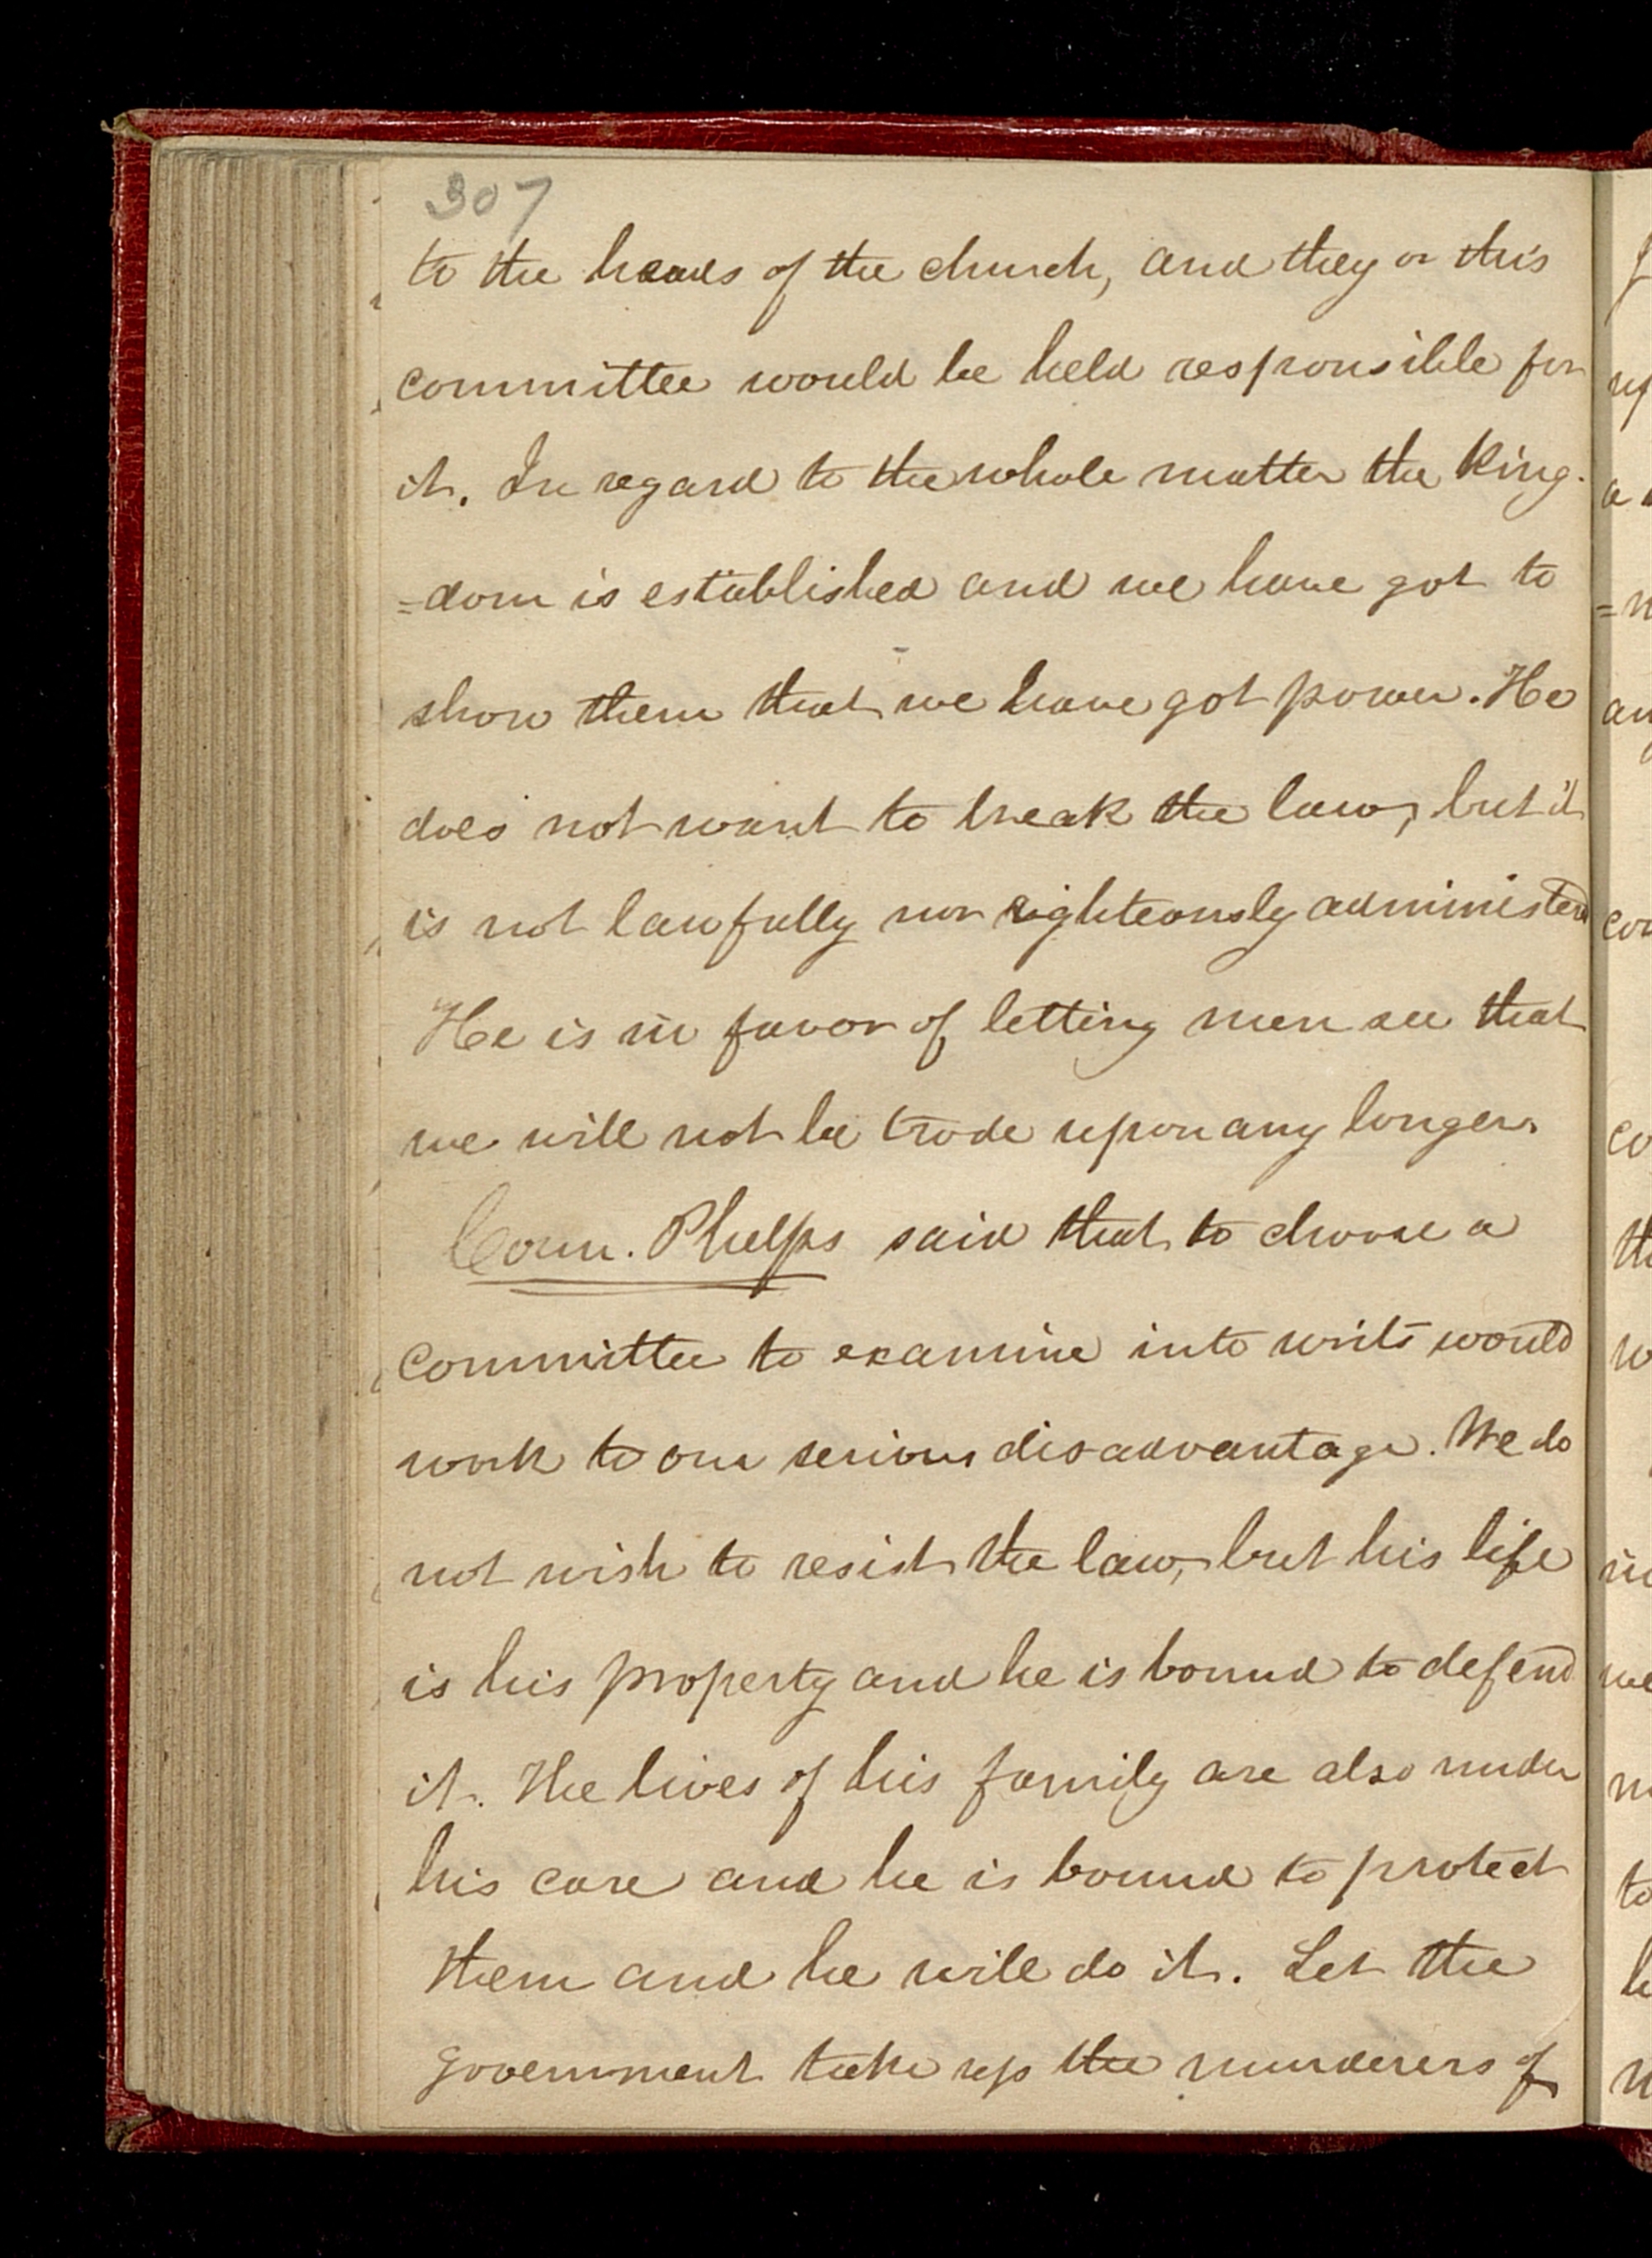 307
to the heads of the church, and they or this
committee would be held responsible for
it. In regard to the whole matter the King-
=dom is established and we have got to
show them that we have got power. He
does not want to break the law, but it
is not lawfully nor righteously administered
He is in favor of letting men see that
we will not be trode upon any longer.
Coun. Phelps said that to choose a
committee to examine into writs would
work to our serious disadvantage. We do
not wish to resist the law, but his life
is his property and he is bound to defend
it. The lives of his family are also under
his care and he is bound to protect
them and he will do it. Let the
government take up the murderers of